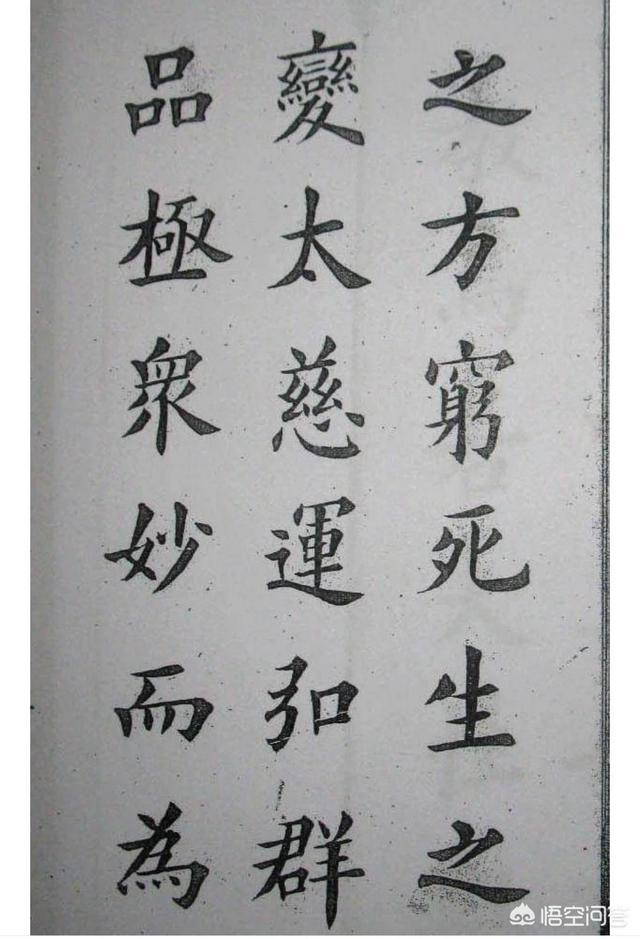 之方窮死生之
變太慈運弘群
品極衆妙而為
悟空问答